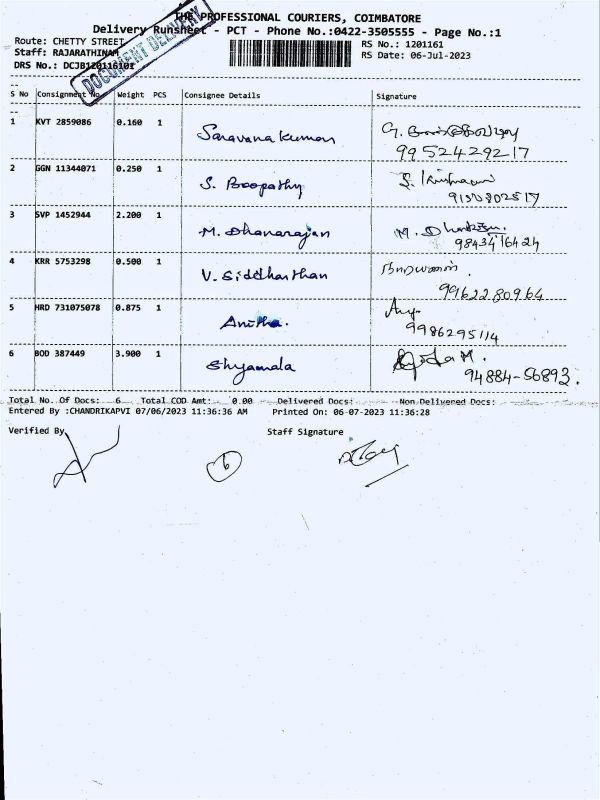 THE PROFESSIONAL COURIERS, COIMBATORE
Delivery Runsheet - PCT - Phone No.:0422-3505555 - Page No.:1
Route: CHETTY STREET
RS No.: 1201161
Staff: RAJARATHINAM
RS Date: 06-Jul-2023
DRS No.: DCJB120116101
DOCUMENT DELIVERY
S No Consignment No. Weight PCS Consignee Details Signature
1 KVT 2859086 0.160 1 Saravana kumar
99524 29217
2 GGN 11344071 0.250 1 S. Boopathy S.
3 SVP 1452944 2.200 1 M. Dhanarajan M.
98434 16424
4 KRR 5753298 0.500 1 V. Siddharthan நாராயணன்.
99622 80964
5 HRD 731075078 0.875 1 Anitha.
9986295114
6 BOD 387449 3.900 1 Shyamala
94884-56893.
Total No. Of Docs: 6 Total COD Amt: 0.00 Delivered Docs: Non Delivered Docs:
Entered By :CHANDRIKAPVI 07/06/2023 11:36:36 AM Printed On: 06-07-2023 11:36:28
Verified By Staff Signature
6